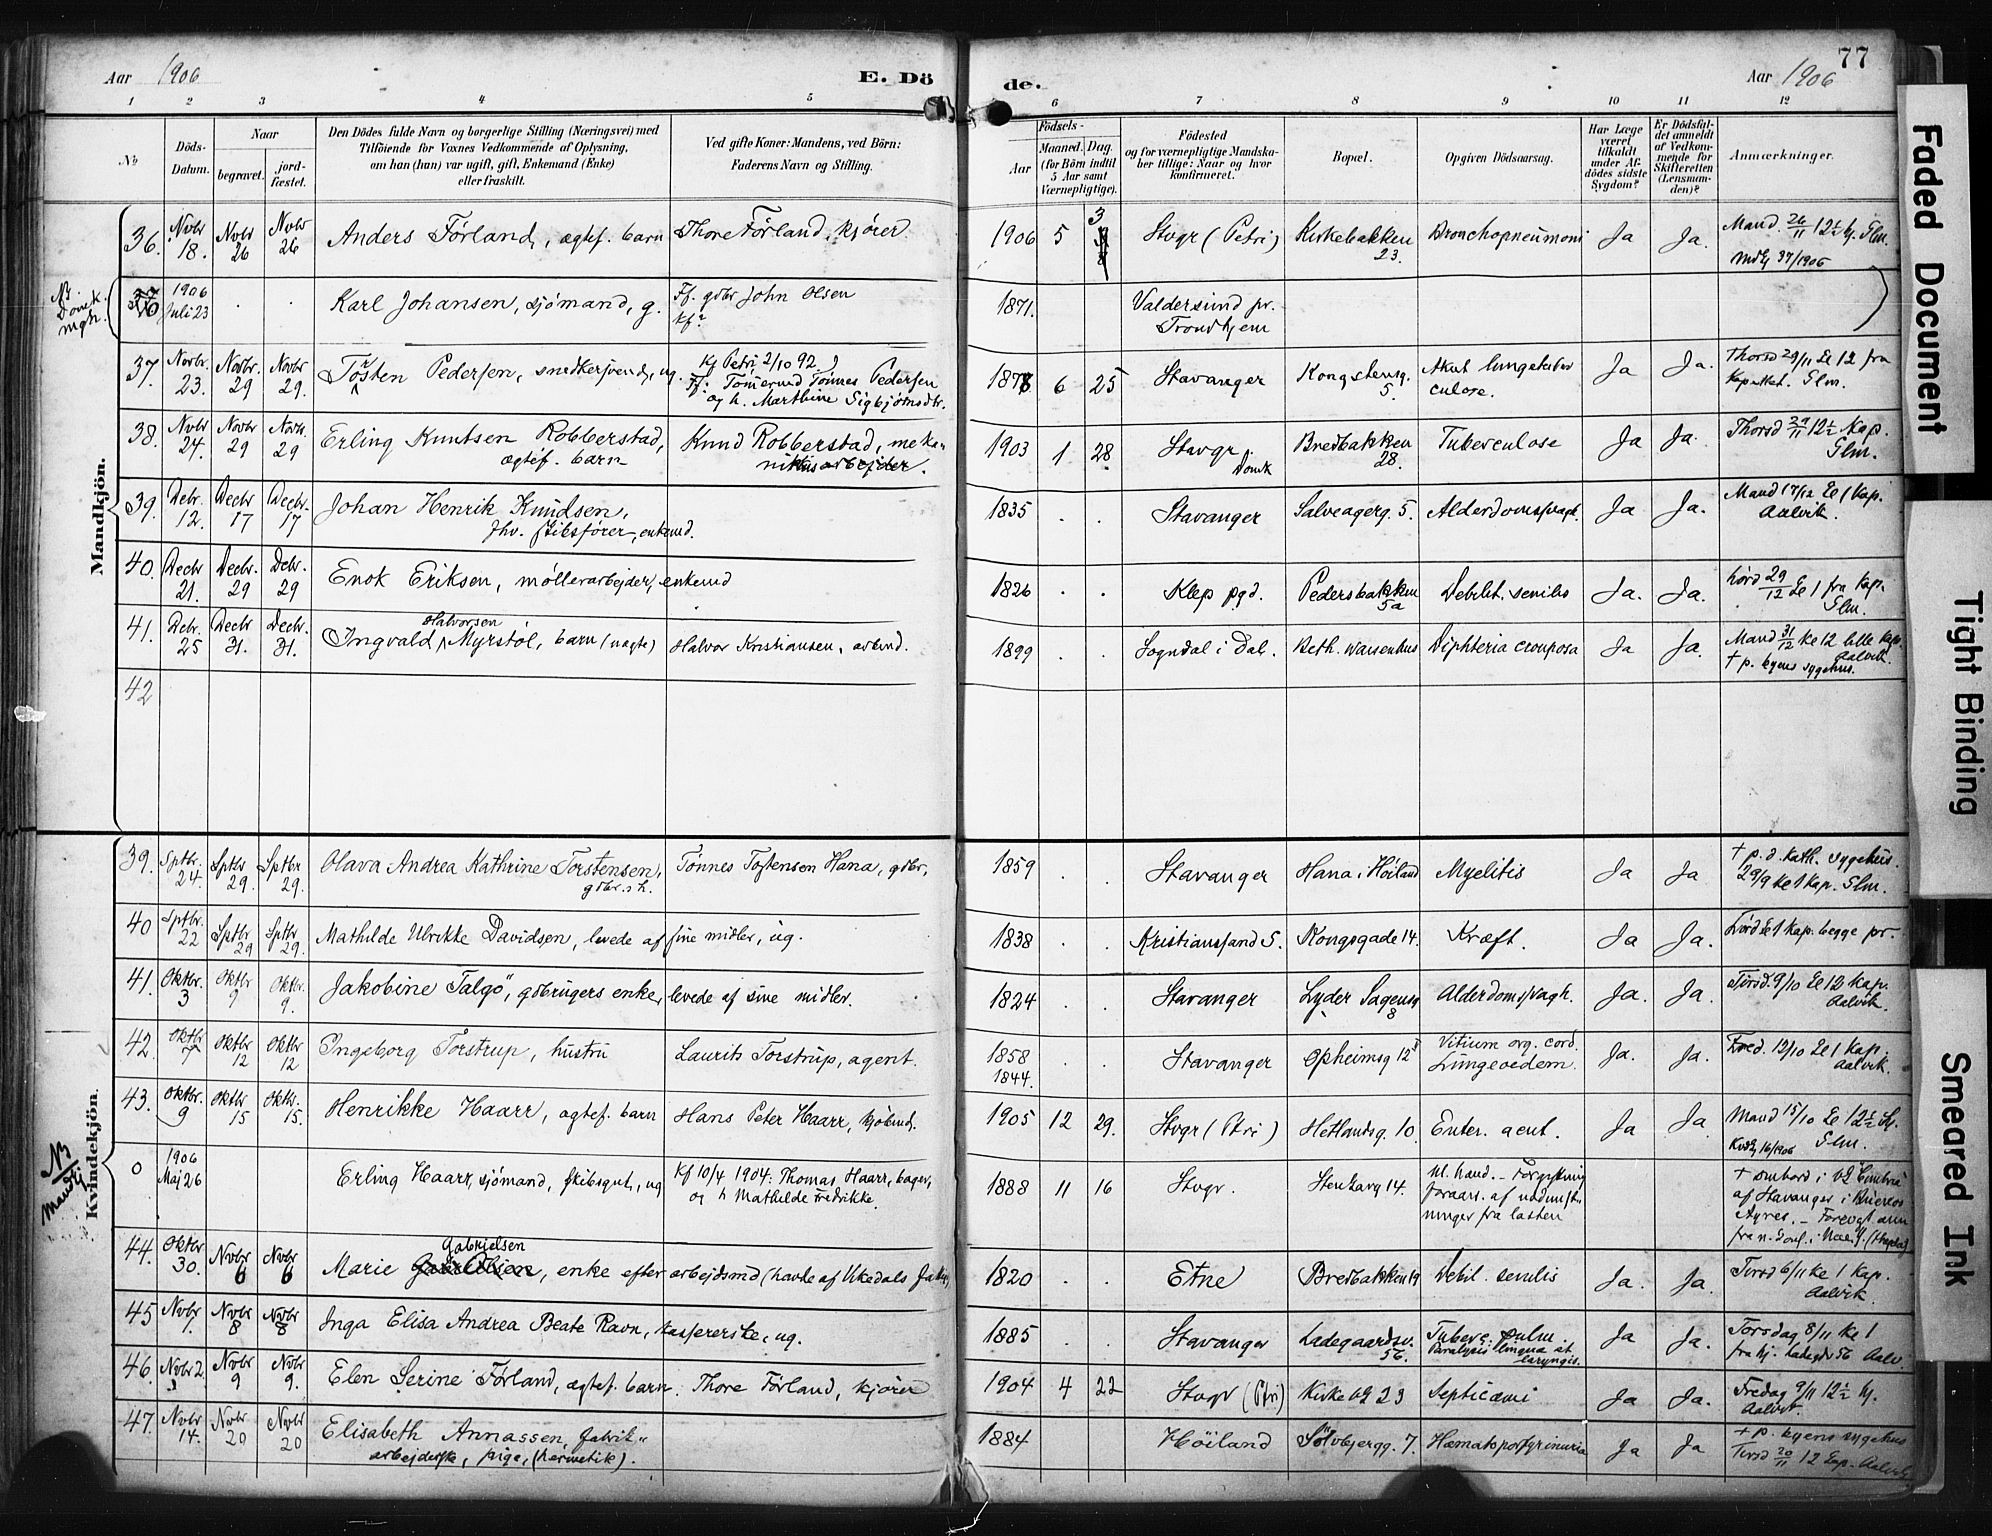 77
Aar 1906
E. Dö
de.
Aar 1906
1 2 3 4 5 6 7 8 9 10 11 12
No
Döds-
Datum.
Naar
begravet.
jord-
fæstet.
Den Dödes fulde Navn og borgerlige Stilling (Næringsvei) med
Tilföiende for Voxnes Vedkommende af Oplysning,
om han (hun) var ugift, gift, Enkemand (Enke)
eller fraskilt.
Ved gifte Koner: Mandens, ved Börn:
Faderens Navn og Stilling.
Födsels-
Aar
Maaned. Dag.
(for Börn indtil
5 Aar samt
Værnepligtige).
Födested
og for værnepligtige Mandska-
ber tillige: Naar og hvor
konfirmeret.
Bopæl.
Opgiven Dödsaarsag.
Har Læge
været
tilkaldt
under Af-
dödes sidste
Sygdom?
Er Dödsfal-
det anmeldt
af Vedkom-
mende for
Skifteretten
(Lensman-
den)?
Anmærkninger.
Mandkjön.
36. Novbr 18. Novbr 26 Novbr 26 Anders Förland, ægtef. barn Thore Förland, kjörer. 1906 5 3 Stvgr (Petri) Kirkebakken 23. Bronchopneumoni Ja Ja. Mand. 26/11 12½ kj. Glm.
1906 Juli 23 . . Karl Johansen, sjömand, g. Ff. gdbr John Olsen 1871. Valdersund pr. Trondhjem
37. Novbr. 23. Novbr. 29 Novbr 29. Torsten Pedersen, snedkersvend, ug. Kf Petri 2/10 92. Ff: Tömermd Tönnes Pedersen og h. Marthine Sigbjörnsdtr. 6 25 Stavanger Kongstensg. 5. Akut lungetuberculose. Ja Ja. Thorsd 29/11 kl 12 fra Kapellet. Glm.
38. Novbr 24. Novbr 29 Novbr. 29 Erling Knutsen Robberstad, ægtef. barn Knud Robberstad, mekanikusarbejder. 1903 1 28 Stavgr. Domk Bredbakken 28. Tuberculose Ja Ja. Thorsd 29/11 12½ Kap. Glm.
39. Debr. 12. Decbr 17 Decbr 17 Johan Henrik Knudsen, fhv. skibsförer, enkemd. 1835 . . Stavanger Salveagerg. 5. Alderdomssvagh. Ja Ja. Mand 17/12 kl 1 Kap. Aalvik.
40. Decbr 21. Decbr. 29 Debr. 29 Enok Eriksen, möllerarbejder, enkemd 1826 . . Klep pgd. Pedersbakken 5a Debilit. senilis Ja. Ja. Lörd 29/12 kl 1 fra Kap. Glm.
41. Debr. 25 Decbr 31. Decbr. 31. Ingvald Halvorsen Myrstöl, barn (uægte) Halvor Kristiansen, arbmd. 1899 . . Sogndal i Dal. Beth. Waisenhus Diphteria crouposa Ja Ja. Mand 31/12 kl 12 lille Kap. Aalvik. † p. byens sygehus.
42
Kvindekjön.
39. Sptbr. 24. Sptbr 29. Sptbr 29. Olava Andrea Kathrine Torstensen, gdbr.s h. Tönnes Tostensen Hana, gdbr, 1859 . . Stavanger Hana i Höiland Myelitis Ja Ja † p. d. kath. sygehus. 29/9 kl 1 Kap. Glm.
40 Sptbr. 22 Sptbr 29 Sptbr 29. Mathilde Ulrikke Davidsen, levede af sine midler, ug. 1838 . . Kristianssand S. Kongsgade 14. Kræft. Ja Ja. Lörd kl 1 Kap. begge pr.
41. Oktbr. 3 Oktbr 9 Oktbr. 9. Jakobine Talgö, gdbrugers enke, levede af sine midler. 1824 . . Stavanger Lyder Sagensg 8 Alderdomssvagh. Ja. Ja. Tirsd. 9/10 kl 12 Kap. Aalvik.
42. Oktbr 7 Oktbr 12 Oktbr 12 Ingeborg Torstrup, hustru Laurits Torstrup, agent. 1858 1844. . . Stavanger Opheimsg 12 Vitium org. cord. Lungeoedem. Ja. Ja. Fred. 12/10 kl 1 Kap. Aalvik.
43. Oktbr. 9 Oktbr 15 Oktbr. 15. Henrikke Haarr, ægtef. barn Hans Peter Haarr, kjöbmd. 1905 12 29. Stvgr (Ptri) Hetlandsg. 10. Enter. acut. Ja Ja Mand 15/10 kl 12½ kj. Glm.
0 1906 Maj 26 Erling Haarr, sjömand, skibsgut, ug Kf 10/4 1904: Thomas Haarr, bager, og h Mathilde Fredrikke. 1888 11 16 Stvgr. Stenkarg 14. Forgiftning foraars. af uddunstninger fra lasten † ombord i af Stavanger i Buenos Ayres.
44. Oktbr 30. Novbr 6 Novbr 6 Marie Gabrielsen, enke efter arbejdsmd 1820 . . Etne Bredbakken 19 Debil. senilis Ja. Ja. Tirsd 6/11 kl 1 Kap. Aalvik.
45 Novbr 1. Novbr 8 Novbr 8 Inga Elisa Andrea Beate Ravn, kassererske, ug. 1885 . . Stavanger Ladegaardsv. 56. Tuberc. pulm. Paralysis lingua et laryngis. Ja Ja Torsdag 8/11 kl 1 fra hj. Ladegdv 56 Aalv.
46. Novbr 2. Novbr 9 Novbr 9. Elen Serine Förland, ægtef. barn. Thore Förland, kjörer 1904 4 22 Stvgr (Ptri) Kirkebg 23 Septicæmi Ja Ja. Fredag 9/11 12½ kj. Aalvik.
47. Novbr 14. Novbr 20 Novbr 20 Elisabeth Annassen, fabrikarbejderske, pige, (hermetik). 1884 Höiland Sölvbjergg. 7. Hæmatoporfyrinuria Ja Ja † p. byens sygehus Tirsd 20/11 12 Kap. Aalvik
Faded Document
Tight Binding
Smeared Ink